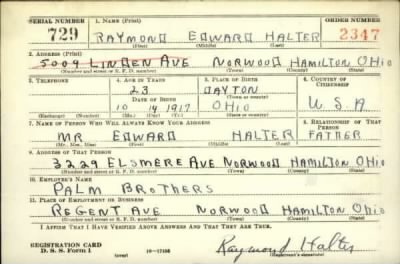 SERIAL NUMBER 1. NAME (Print) ORDER NUMBER
729 RAYMOND EDWARD HALTER 2347
(First) (Middle) (Last)
2. ADDRESS (Print)
5009 LINDEN AVE NORWOOD HAMILTON OHIO
(Number and street or R. F. D. number) (Town) (County) (State)
3. TELEPHONE 4. AGE IN YEARS 5. PLACE OF BIRTH 6. COUNTRY OF CITIZENSHIP
23 DAYTON
(Town or county)
DATE OF BIRTH
10 14 1917 OHIO U.S.A
(Exchange) (Number) (Mo.) (Day) (Yr.) (State or country)
7. NAME OF PERSON WHO WILL ALWAYS KNOW YOUR ADDRESS 8. RELATIONSHIP OF THAT PERSON
MR EDWARD HALTER FATHER
(Mr., Mrs., Miss) (First) (Middle) (Last)
9. ADDRESS OF THAT PERSON
3229 ELSMERE AVE NORWOOD HAMILTON OHIO
(Number and street or R. F. D. number) (Town) (County) (State)
10. EMPLOYER'S NAME
PALM BROTHERS
11. PLACE OF EMPLOYMENT OR BUSINESS
REGENT AVE NORWOOD HAMILTON OHIO
(Number and street or R. F. D. number) (Town) (County) (State)
I AFFIRM THAT I HAVE VERIFIED ABOVE ANSWERS AND THAT THEY ARE TRUE.
REGISTRATION CARD
D. S. S. Form 1 (over) Raymond Halter
(Registrant's signature)